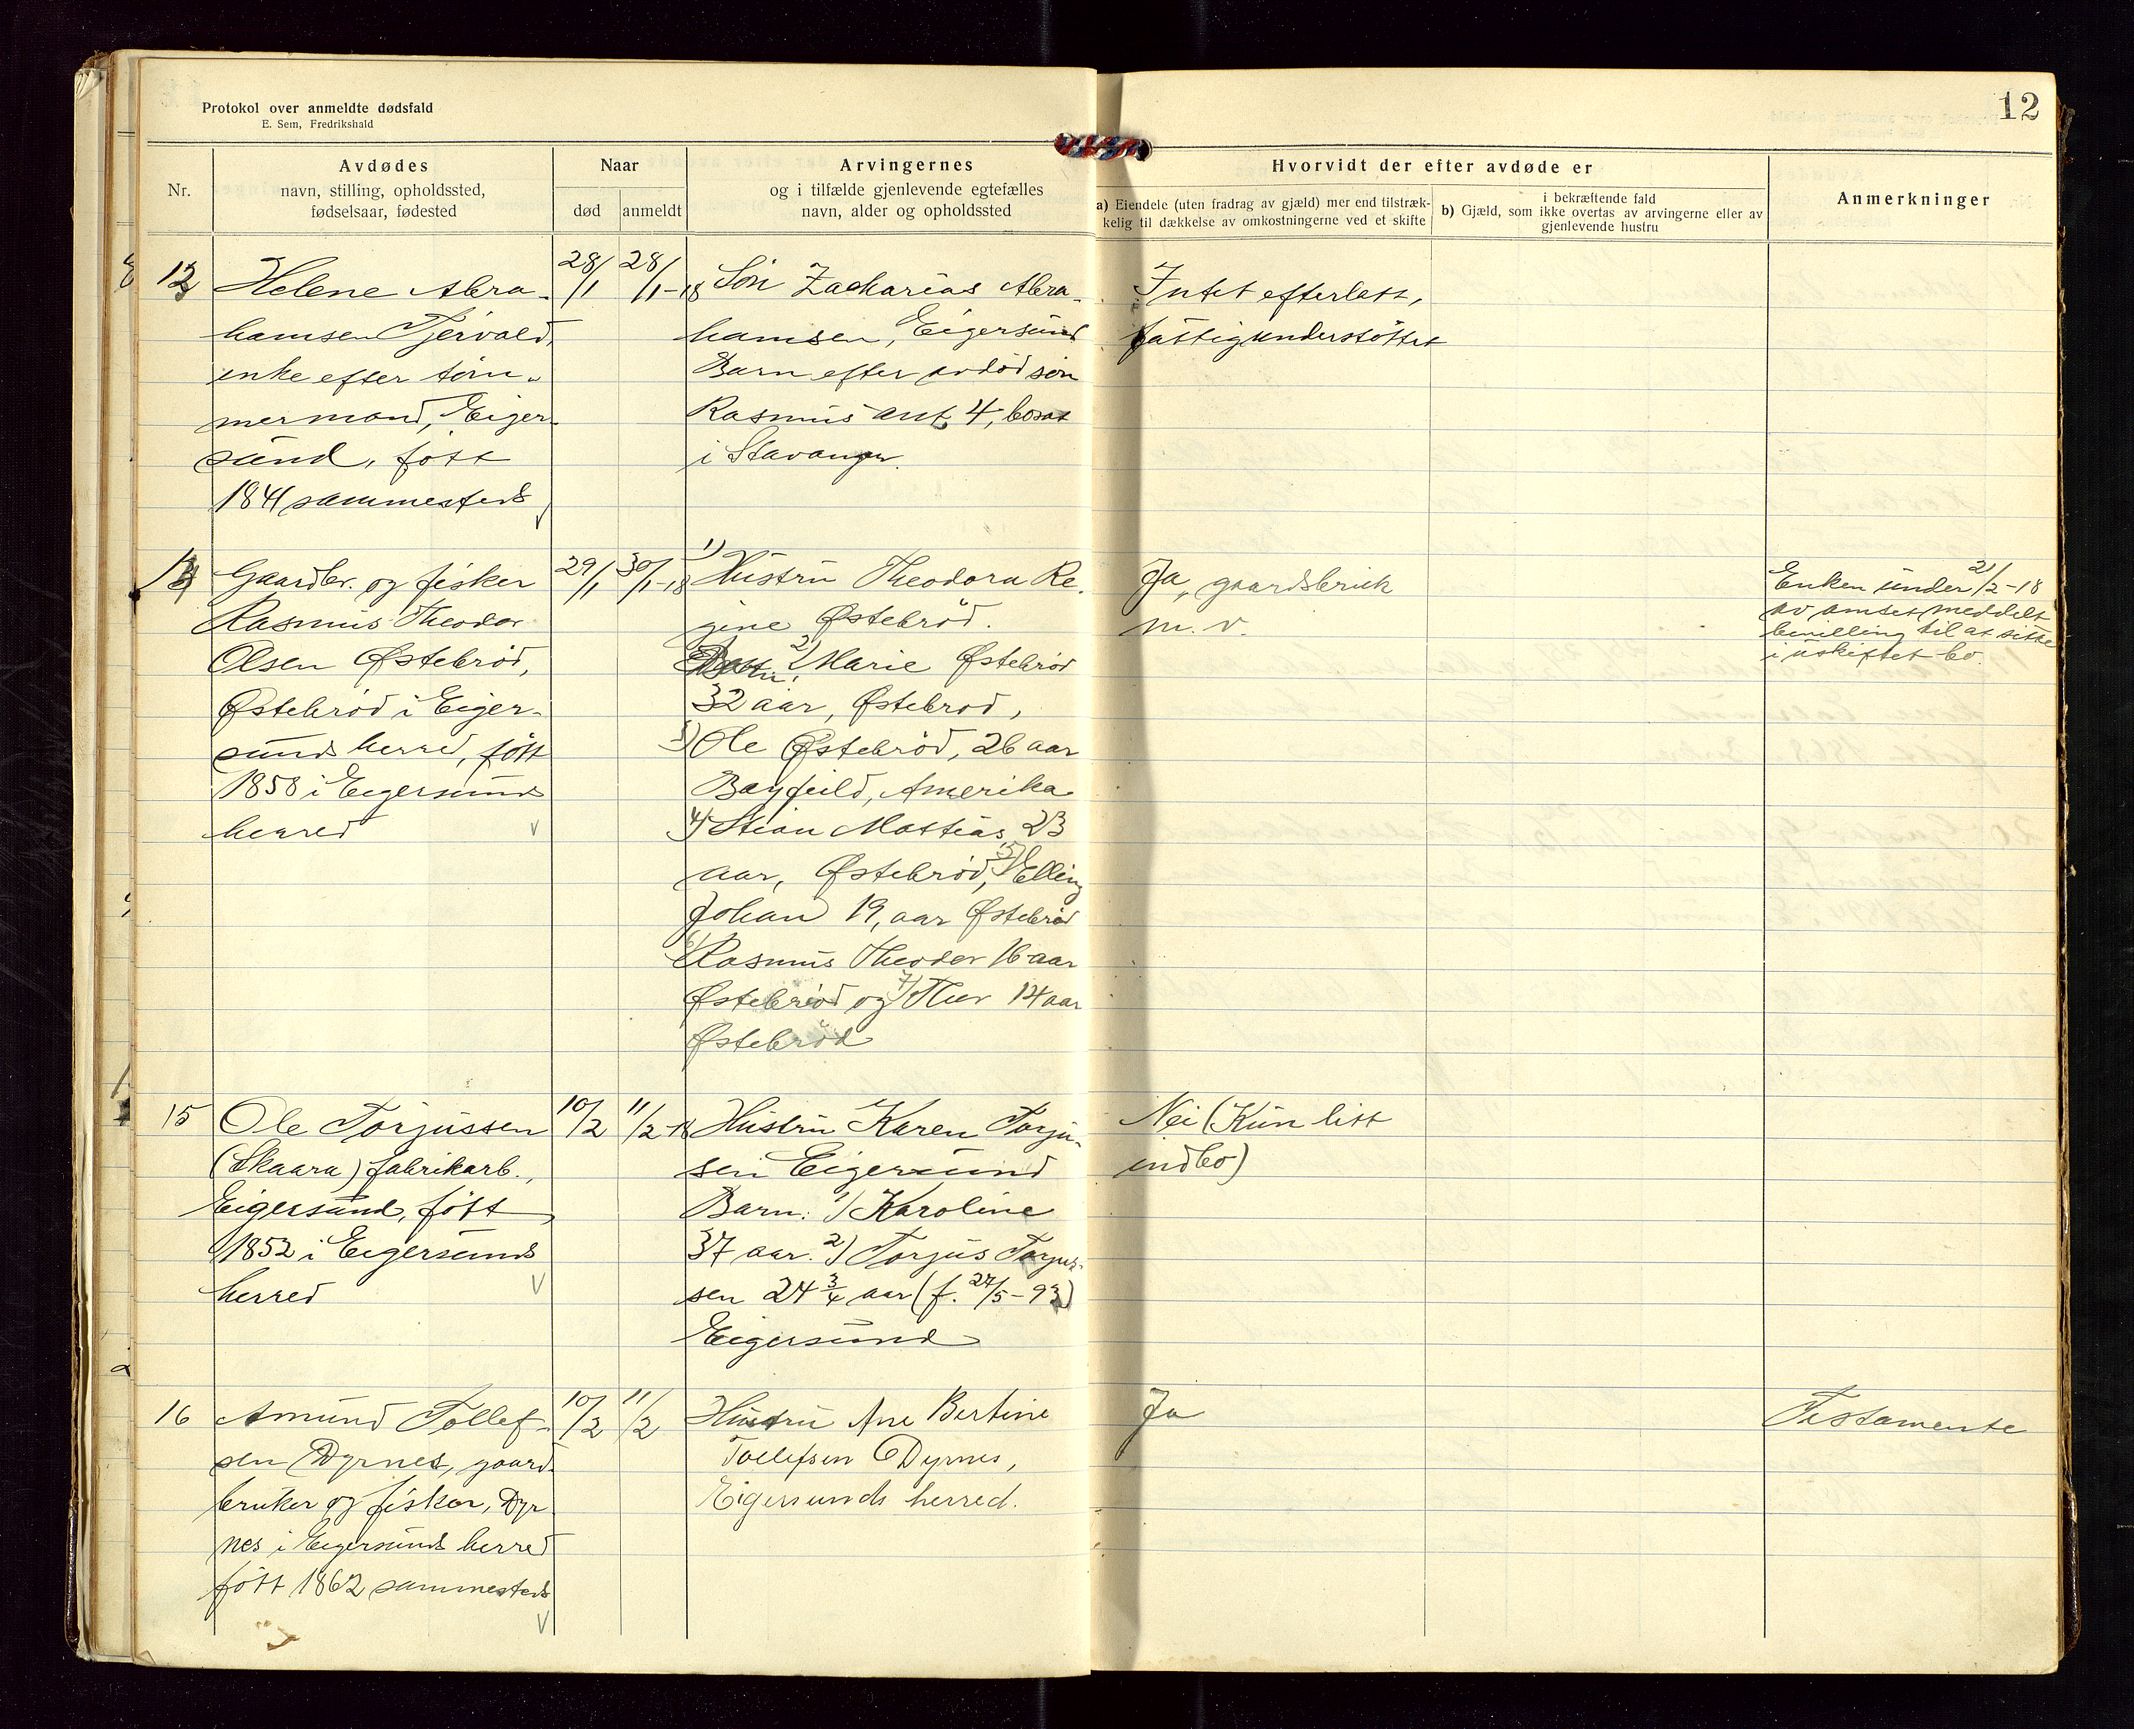 Protokol over anmeldte dødsfald
E. Sem, Fredrikshald
12
Nr.
Avdødes
navn, stilling, opholdssted,
fødselsaar, fødested
Naar
død
anmeldt
Arvingernes
og i tilfælde gjenlevende egtefælles
navn, alder og opholdssted
Hvorvidt der efter avdøde er
a) Eiendele (uten fradrag av gjæld) mer end tilstræk-
kelig til dækkelse av omkostningerne ved et skifte
i bekræftende fald
b) Gjæld, som ikke overtas av arvingerne eller av
gjenlevende hustru
Anmerkninger
13
Helene Abra-
hamsen Tjervald,
enke efter töm-
mermand, Eiger-
sund, fött
1841 sammesteds
28/1
28/1-18
Sön Zacharias Abra-
hamsen, Eigersund
Barn efter avdöd sön
Rasmus ant. 4, bosat
i Stavanger.
Intet efterlatt,
fattigunderstöttet
14
Gaardbr. og fisker
Rasmus Theodor
Olsen Østebröd,
Østebröd i Eiger-
sunds herred, fött
1858 i Eigersunds
herred
29/1
30/1-18
1) Hustru Theodora Re-
gine Østebröd.
Barn: 2) Marie Østebröd
32 aar, Østebröd,
3) Ole Østebröd, 26 aar
Bayfeild, Amerika
4) Stian Mattias 23
aar, Østebröd, 5) Elling
Johan 19, aar Østebröd
6) Rasmus Theodor 16 aar
Østebröd og 7) Thor 14 aar
Østebröd
Ja, gaardsbruk
m. v.
Enken under 2/2-18
av amtet meddelt
bevilling til at sitte
i uskiftet bo.
15
Ole Torjussen
(Skaara) fabrikarb.,
Eigersund, fött
1852 i Eigersunds
herred
10/2
11/2-18
Hustru Karen Torju-
sen Eigersund
Barn: 1) Karoline
37 aar. 2) Torjus Torjus-
sen 24 3/4 aar (f. 27/5-93)
Eigersund
Nei (Kun litt
indbo)
16
Amund Tollef-
sen Dyrnes, gaard-
bruker og fisker, Dyr
nes i Eigersunds herred
fött 1862 sammesteds
10/2
11/2
Hustru Ane Bertine
Tollefsen Dyrnes,
Eigersunds herred.
Ja
Testamente